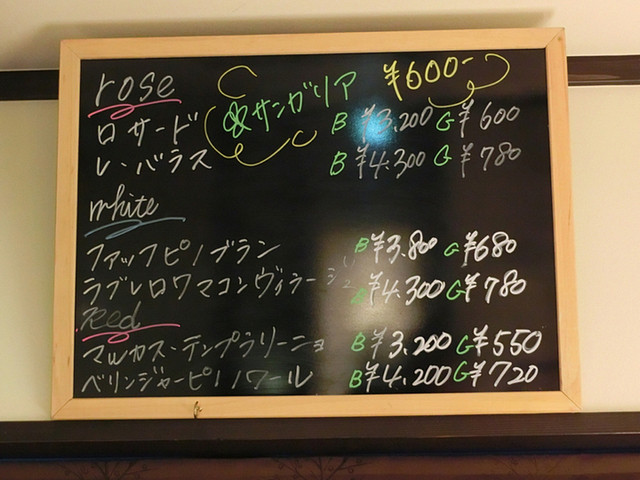 rose
サンガリア ¥600-
ロサード B ¥3,200 G ¥600
レ・バラス B ¥4,300 G ¥780
white
ファッフピノブラン B ¥3,800 G ¥680
ラブレロワマコンヴィラージュ B ¥4,300 G ¥780
Red
マルカス・テンプラリーニョ B ¥3,200 G ¥550
ベリンジャーピノノワール B ¥4,200 G ¥720